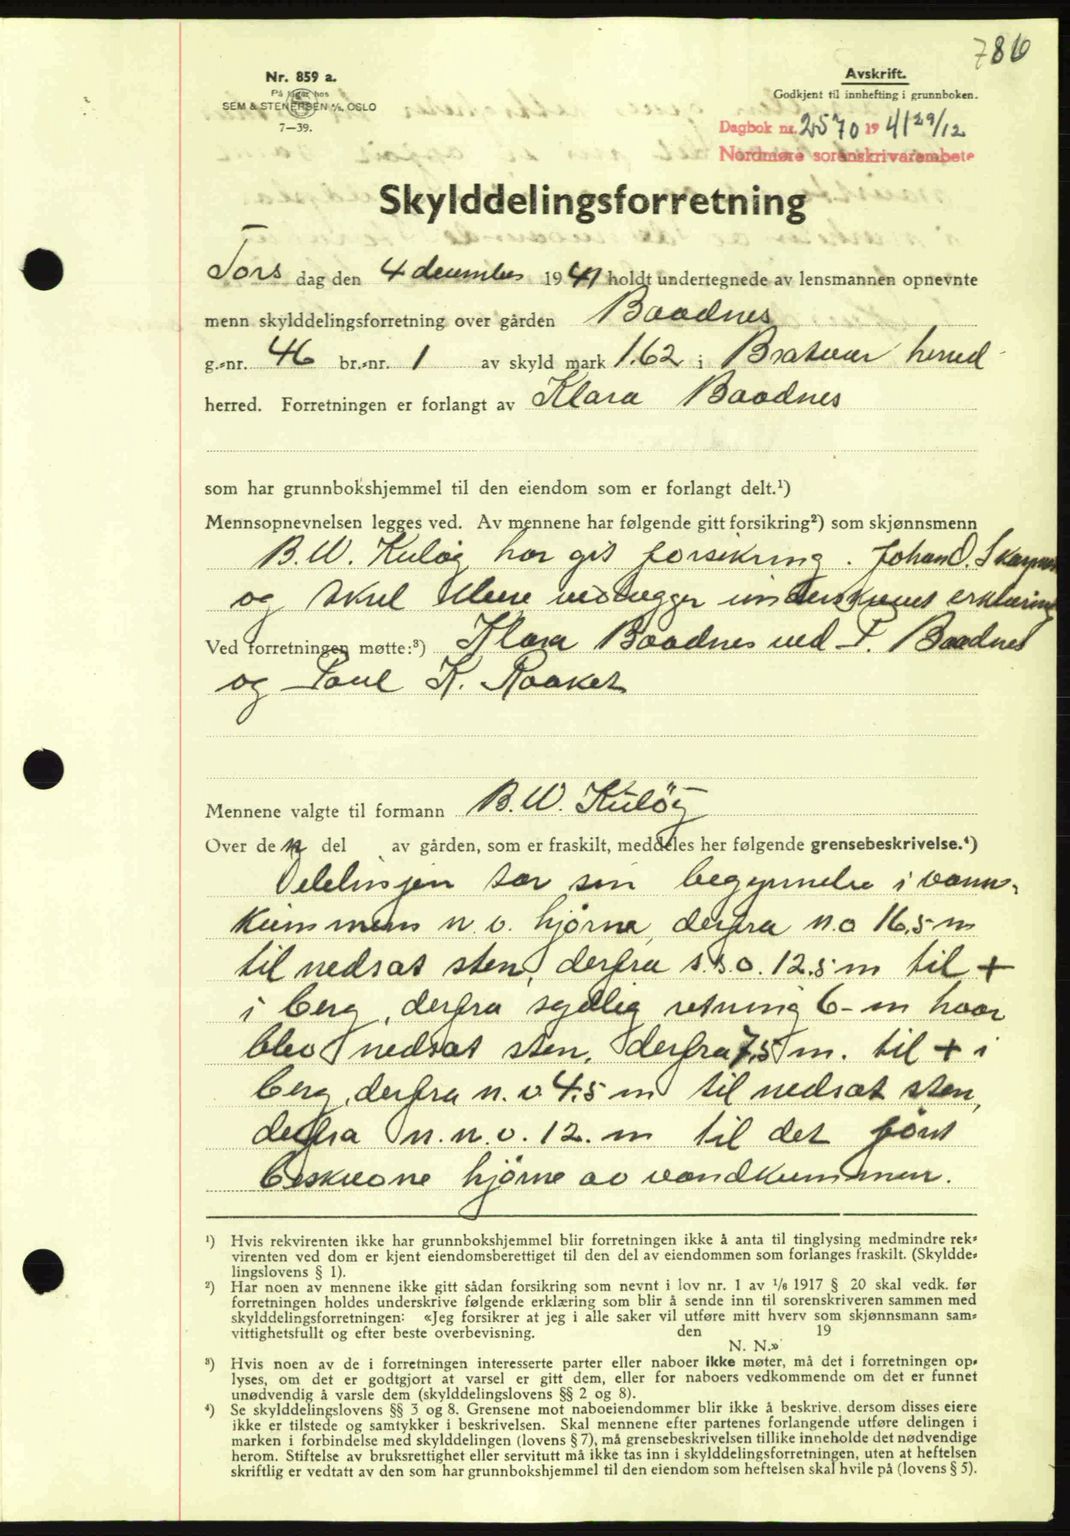 786
Nr. 859 a.
På lager hos
SEM & STENERSEN A/S, OSLO
7-39.
Avskrift.
Godkjent til innhefting i grunnboken.
Dagbok nr. 2570 1941 29/12
Nordmøre sorenskrivarembete
Skylddelingsforretning
Tors dag den 4 december 1941 holdt undertegnede av lensmannen opnevnte
menn skylddelingsforretning over gården Baadnes
g.-nr. 46 br.-nr. 1 av skyld mark 1.62 i Bratvær herred
herred. Forretningen er forlangt av Klara Baadnes
som har grunnbokshjemmel til den eiendom som er forlangt delt.¹)
Mennsopnevnelsen legges ved. Av mennene har følgende gitt forsikring²) som skjønnsmenn
B.W. Kuløy har git forsikring. Johan O.
og vedlegger underskrevet erklæring
Ved forretningen møtte:³) Klara Baadnes ved P. Baadnes
og Paul K. Raaket
Mennene valgte til formann B.W. Kuløy
Over den del av gården, som er fraskilt, meddeles her følgende grensebeskrivelse.⁴)
Delelinjen tar sin begynnelse i vann-
kummens n.v. hjørne, derfra n.o 16,5 m
til nedsat sten, derfra s.s.o. 12.5 m til +
i berg, derfra sydlig retning 6 - m hvor
blev nedsat sten, derfra 7,5 m. til + i
berg, derfra n.v. 4.5 m til nedsat sten,
derfra n.n.v. 12. m til det først
beskrevne hjørne av vandkummen.
¹) Hvis rekvirenten ikke har grunnbokshjemmel blir forretningen ikke å anta til tinglysing medmindre rek-
virenten ved dom er kjent eiendomsberettiget til den del av eiendommen som forlanges fraskilt. (Skyldde-
lingslovens § 1).
²) Har noen av mennene ikke gitt sådan forsikring som nevnt i lov nr. 1 av 1/6 1917 § 20 skal vedk. før
forretningen holdes underskrive følgende erklæring som blir å sende inn til sorenskriveren sammen med
skylddelingsforretningen: «Jeg forsikrer at jeg i alle saker vil utføre mitt hverv som skjønnsmann sam-
vittighetsfullt og efter beste overbevisning. den 19
N. N.»
³) Hvis noen av de i forretningen interesserte parter eller naboer ikke møter, må det i forretningen op-
lyses, om det er godtgjort at varsel er gitt dem, eller for naboers vedkommende om det er funnet
unødvendig å varsle dem (skylddelingslovens §§ 2 og 8).
⁴) Se skylddelingslovens §§ 3 og 8. Grensene mot naboeiendommer blir ikke å beskrive, dersom disses eiere
ikke er tilstede og samtykker i beskrivelsen. Skal mennene efter partenes forlangende utføre delingen i
marken i forbindelse med skylddelingen (lovens § 7), må grensebeskrivelsen tillike inneholde det nødvendige
herom. Stiftelse av bruksrettighet eller servitutt må ikke tas inn i skylddelingsforretningen, uten at heftelsen
skriftlig er vedtatt av den som har grunnbokshjemmel til den eiendom som heftelsen skal hvile på (lovens § 5).